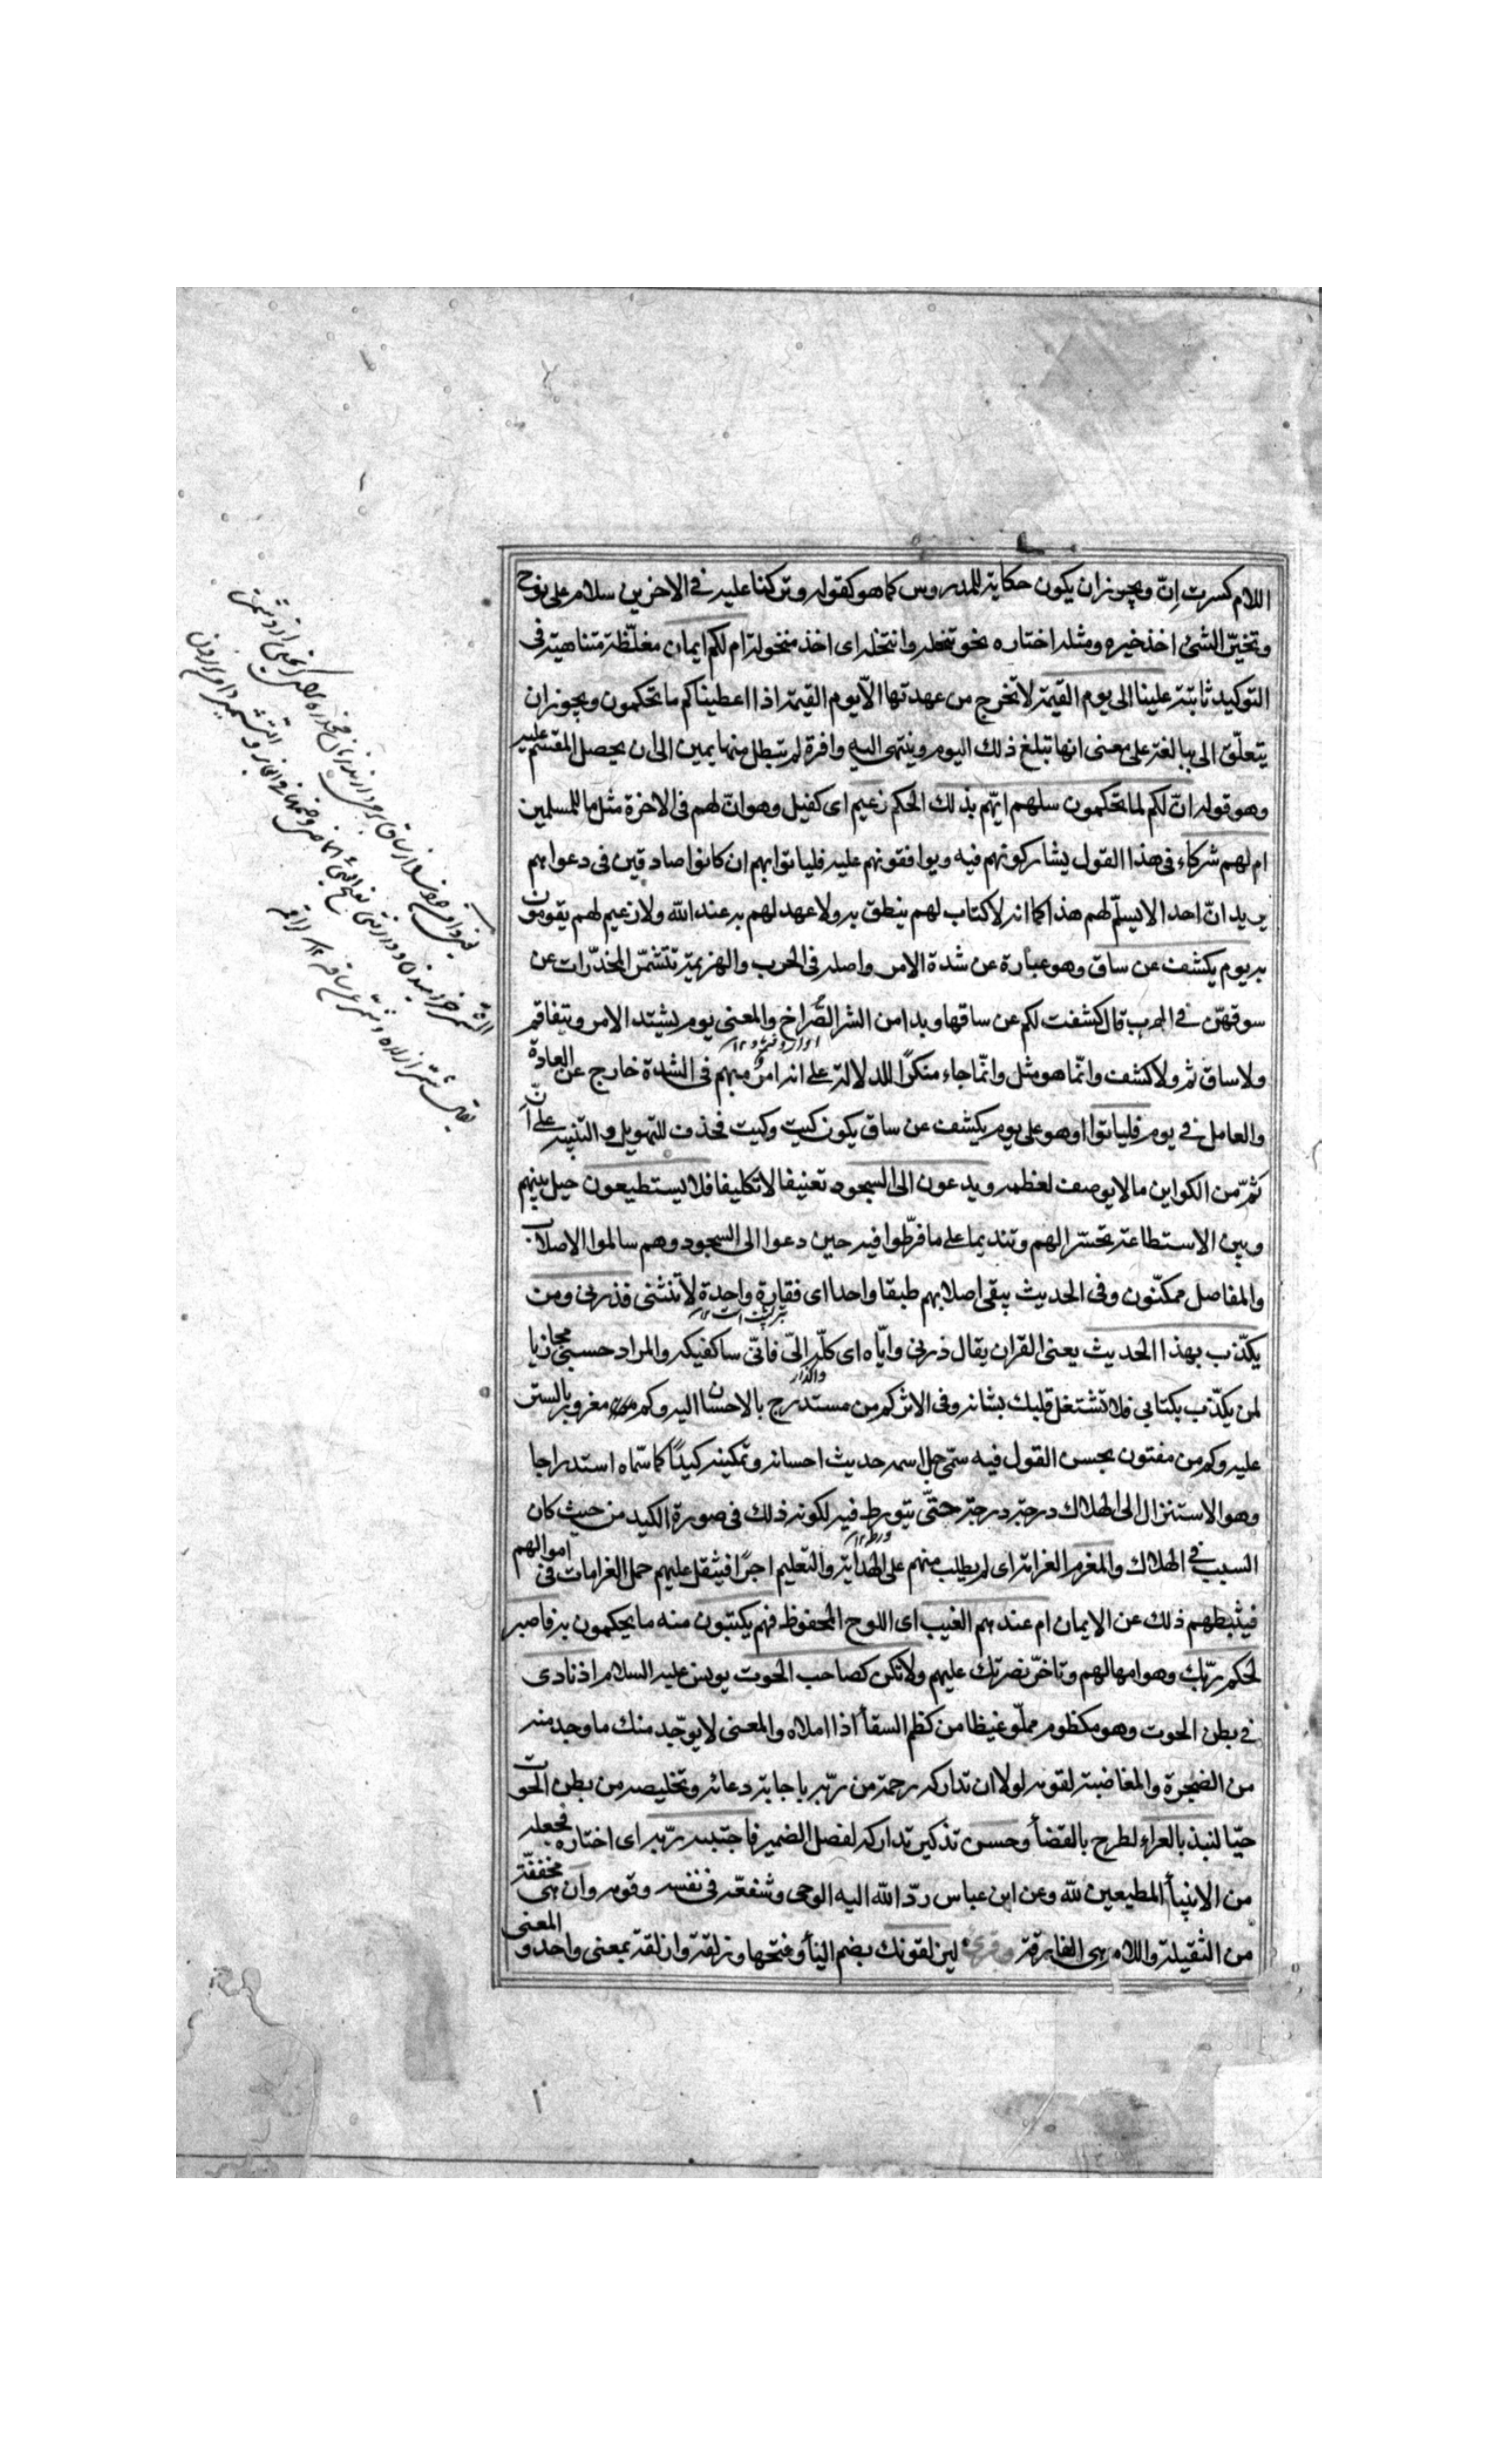 اللام كسرت إنّ ويجوز ان يكون حكاية للمدروس كما هو كقوله وتركنا عليه في الاخرين سلام على نوح
وتخيّر الشئ اخذ خيره ومثله اختاره نحو تنخله وانتخله اى اخذ منخوله ام لكم ايمان مغلّظة متناهية فى
التوكيد ثابتة علينا الى يوم القيمة لا تخرج من عهدتها الّا يوم القيمة اذا اعطيناكم ما تحكمون ويجوز ان
يتعلّق الى ببالغة على معنى انها تبلغ ذلك اليوم وينتهى اليه وافرة لم تبطل منها يمين الى ان يحصل المقسم عليه
وهو قوله انّ لكم لما تحكمون سلهم ايّهم بذلك الحكم زعيم اى كفيل وهو انّ لهم فى الاخرة مثل ما للمسلمين
ام لهم شركاء فى هذا القول يشاركونهم فيه ويوافقونهم عليه فلياتوا بهم ان كانوا صادقين فى دعواهم
يريد انّ احدا لا يسلّم لهم هذا كما انه لا كتاب لهم ينطق به ولا عهد لهم به عند الله ولا زعيم لهم يقومون
به يوم يكشف عن ساق وهو عبارة عن شدة الامر واصله فى الحرب والهزيمة تتشمّر المخدّرات عن
سوقهنّ فى الهرب قال كشفت لكم عن ساقها وبدا من الشر الصُّراخ والمعنى يوم يشتد الامر ويتفاقم
ولا ساق ثم ولا كشف وانّما هو مثل وانّما جاء منكرًا للدلالة على انه امرٌ مبهم فى الشدة خارج عن العادة
والعامل فى يوم فلياتوا او هو على يوم يكشف عن ساق يكون كيت وكيت فحذف للتهويل والتنبيه على أنّ
ثمّ من الكواين ما لا يوصف لعظمه ويدعون الى السجود تعنيفا لا تكليفا فلا يستطيعون حيل بينهم
وبين الاستطاعة تحسّرا لهم وتنديما على ما فرّطوا فيه حين دعوا الى السجود وهم سالموا الاصلاب
والمفاصل ممكّنون وفى الحديث يبقى اصلابهم طبقا واحدا اى فقارة واحدة لا تنثنى فذرنى ومن
يكذّب بهذا الحديث يعنى القران يقال ذرنى وايّاه اى كلّه الىّ فانّى ساكفيكه والمراد حسبى مجازيا
لمن يكذّب بكتابى فلا تشتغل قلبك بشانه وفى الاثر كم من مستدرج بالاحسان اليه وكم مغرور بالستر
عليه وكم من مفتون بحسن القول فيه سمّى جل اسمه حديث احسانه وتمكينه كيدًا كما سمّاه استدراجا
وهو الاستنزال الى الهلاك درجة درجة حتّى يتورط فيه لكونه ذلك فى صورة الكيد من حيث كان
السبب فى الهلاك والمغرم الغرامة اى لم يطلب منهم على الهداية والتعليم اجرًا فيثقل عليهم حمل الغرامات فى اموالهم
فيثبطهم ذلك عن الايمان ام عندهم الغيب اى اللوح المحفوظ فهم يكتبون منه ما يحكمون به فاصبر
لحكم ربّك وهو امهالهم وتاخّر نصرتك عليهم ولا تكن كصاحب الحوت يونس عليه السلام اذ نادى
فى بطن الحوت وهو مكظوم مملّو غيظا من كظم السقأ اذا املاه والمعنى لا يوجد منك ما وجد منه
من الضجرة والمغاضبة لقومه لولا ان تداركه رحمة من ربّه باجابة دعائه وتخليصه من بطن الحوت
حيّا لنبذ بالعراء لطرح بالقضأ وحسن تذكير تداركه لفصل الضمير فاجتبىه ربّه اى اختاره فجعله
من الانبيأ المطيعين لله وعن ابن عباس ردّ الله اليه الوحى وشفعّه فى نفسه وقومه وان هى مخففّة
من الثقيلة واللام هى الفارقة وقرئ ليزلقونك بضم اليأ وفتحها وزلقة وازلقة بمعنى واحد و المعنى